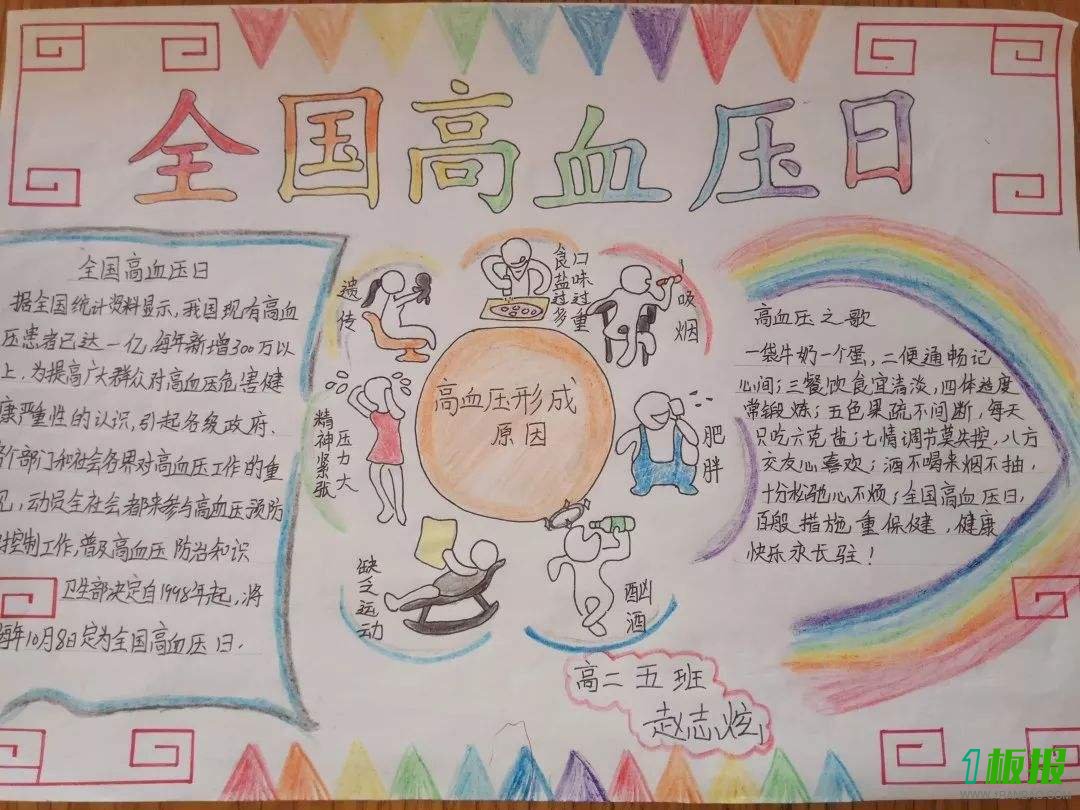 全国高血压日
全国高血压日
据全国统计资料显示,我国现有高血
压患者已达一亿,每年新增300万以
上.为提高广大群众对高血压危害健
康严重性的认识,引起各级政府.
各个部门和社会各界对高血压工作的重
见,动员全社会都来参与高血压预防
控制工作,普及高血压防治知识
卫生部决定自1998年起,将
每年10月8日定为全国高血压日.
遗传
口味过重
食盐过多
吸烟
肥胖
酗酒
缺乏运动
压力大
精神紧张
高血压形成
原因
高血压之歌
一袋牛奶一个蛋,二便通畅记
心间;三餐饮食宜清淡,四体适度
常锻炼;五色果疏不间断,每天
只吃六克盐;七情调节莫失控,八方
交友心喜欢;酒不喝来烟不抽,
十分松弛心不烦;全国高血压日,
百般措施重保健,健康
快乐永长驻!
高二五班
赵志炫
1板报
WWW.1BANBAO.COM